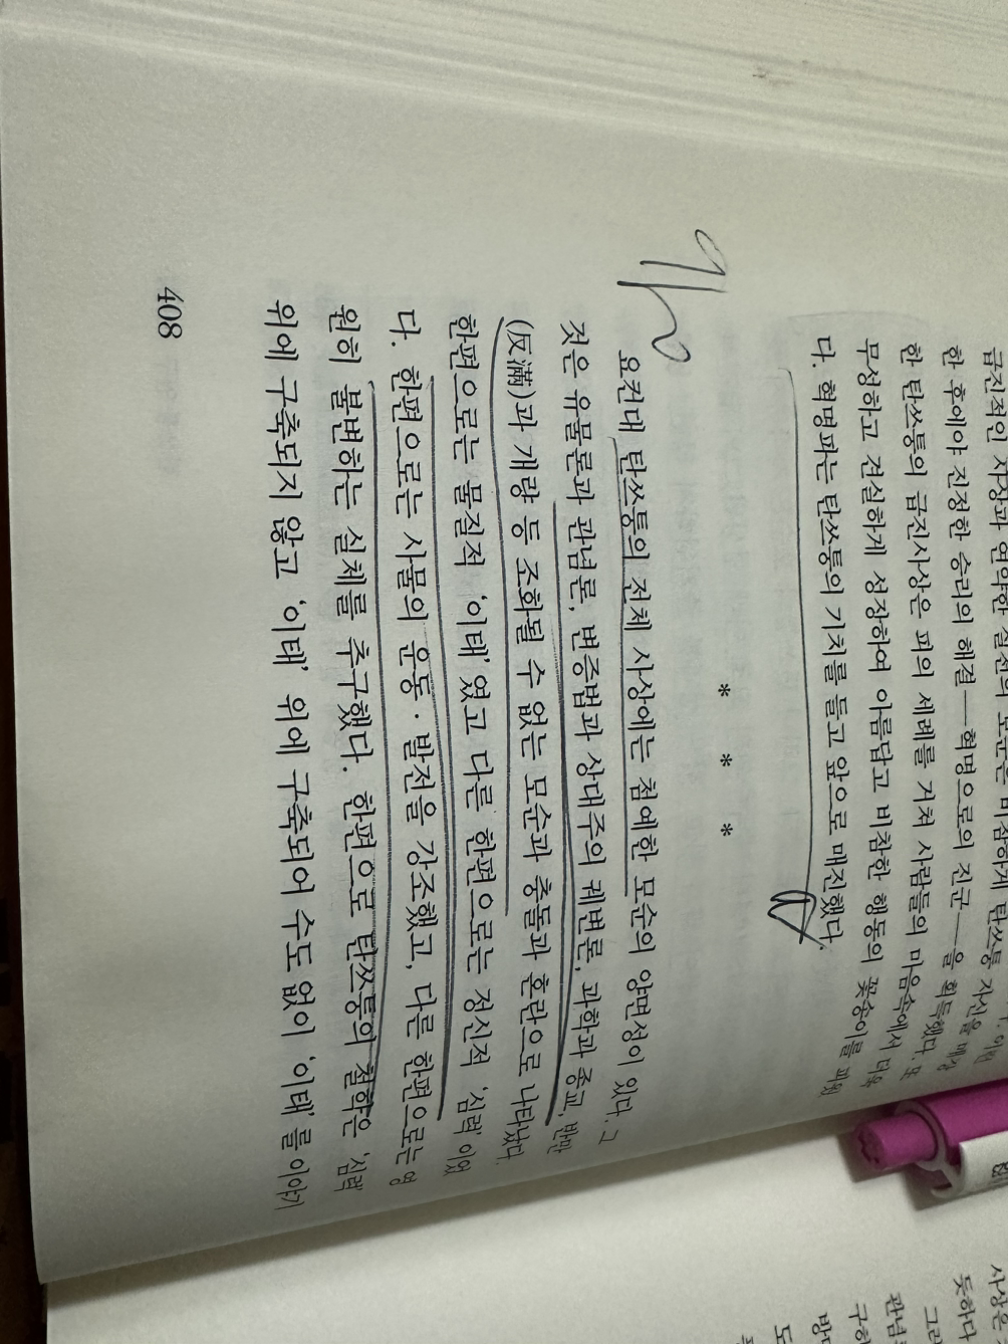 급진적인 사상과 연약한 실천의 모순은 비참하게 탄쓰통 자신을 매장
한 후에야 진정한 승리의 해결——혁명으로의 진군——을 획득했다. 또
한 탄쓰통의 급진사상은 피의 세례를 거쳐 사람들의 마음속에서 더욱
무성하고 견실하게 성장하여 아름답고 비참한 행동의 꽃송이를 피웠
다. 혁명파는 탄쓰통의 기치를 들고 앞으로 매진했다.
* * *
요컨대 탄쓰통의 전체 사상에는 첨예한 모순의 양면성이 있다. 그
것은 유물론과 관념론, 변증법과 상대주의 궤변론, 과학과 종교, 반만
(反滿)과 개량 등 조화될 수 없는 모순과 충돌과 혼란으로 나타났다.
한편으로는 물질적 '이태'였고 다른 한편으로는 정신적 '심력'이었
다. 한편으로는 사물의 운동·발전을 강조했고, 다른 한편으로는 영
원히 불변하는 실체를 추구했다. 한편으로 탄쓰통의 철학은 '심력'
위에 구축되지 않고 '이태' 위에 구축되어 수도 없이 '이태'를 이야기
408
사상은
듯하다
그러
관념
구하
방
도